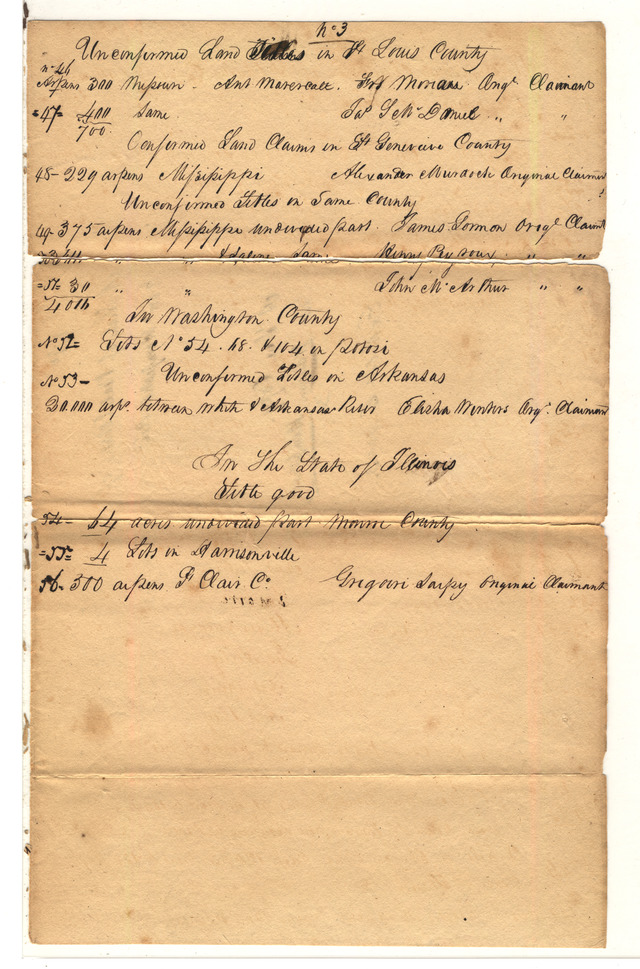 No 3
Unconfirmed Land Titles in St Louis County
No 46
Arpens 300 Missouri - Ant Marereall. Origl Claimant
=47= 400 Same Jas McDaniel " "
700
Confirmed Land Claims in St Genevieve County
48 - 229 arpens Mississippi Alexander Murdock Original Claimant
Unconfirmed Titles in Same County
49- 375 arpens Mississippi undivided part. James Lormon Origl Claimt
" " & Saline Same Henry " "
=51= 30 " " John McArthur " "
40
In Washington County
No 52= Lots No 54. 68. & 104 in Potosi
No 53- Unconfirmed Titles in Arkansas
30.000 arps between White & Arkansas River Elisha Winters Orgl. Claimant
In The State of Illinois
Title good
54- 64 acres undivided part Monroe County
=55= 4 Lots in Harrisonville
56- 300 arpens St Clair Co. Gregoire Sarpy Original Claimant